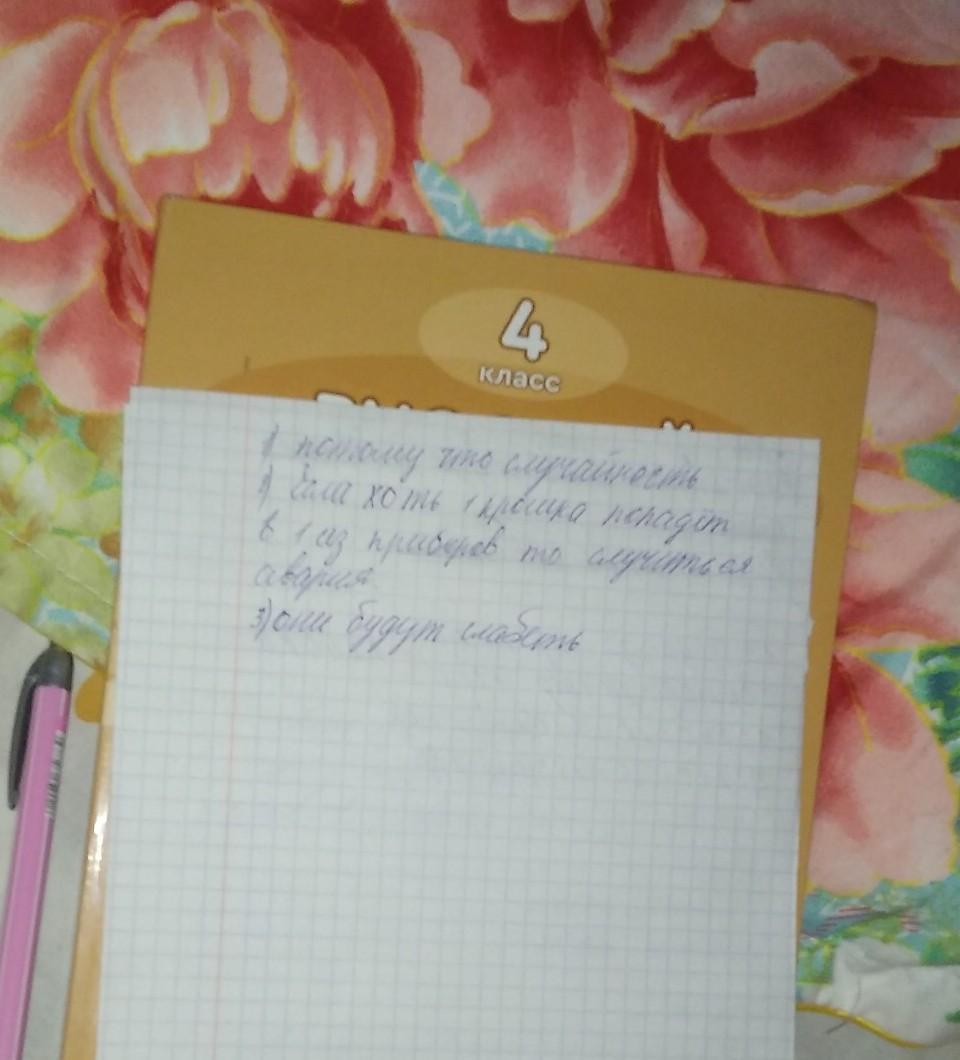 4
класс
1) потому что случайность
2) Если хоть 1 крошка попадёт
в 1 из приборов то случиться
авария
3) они будут слабеть